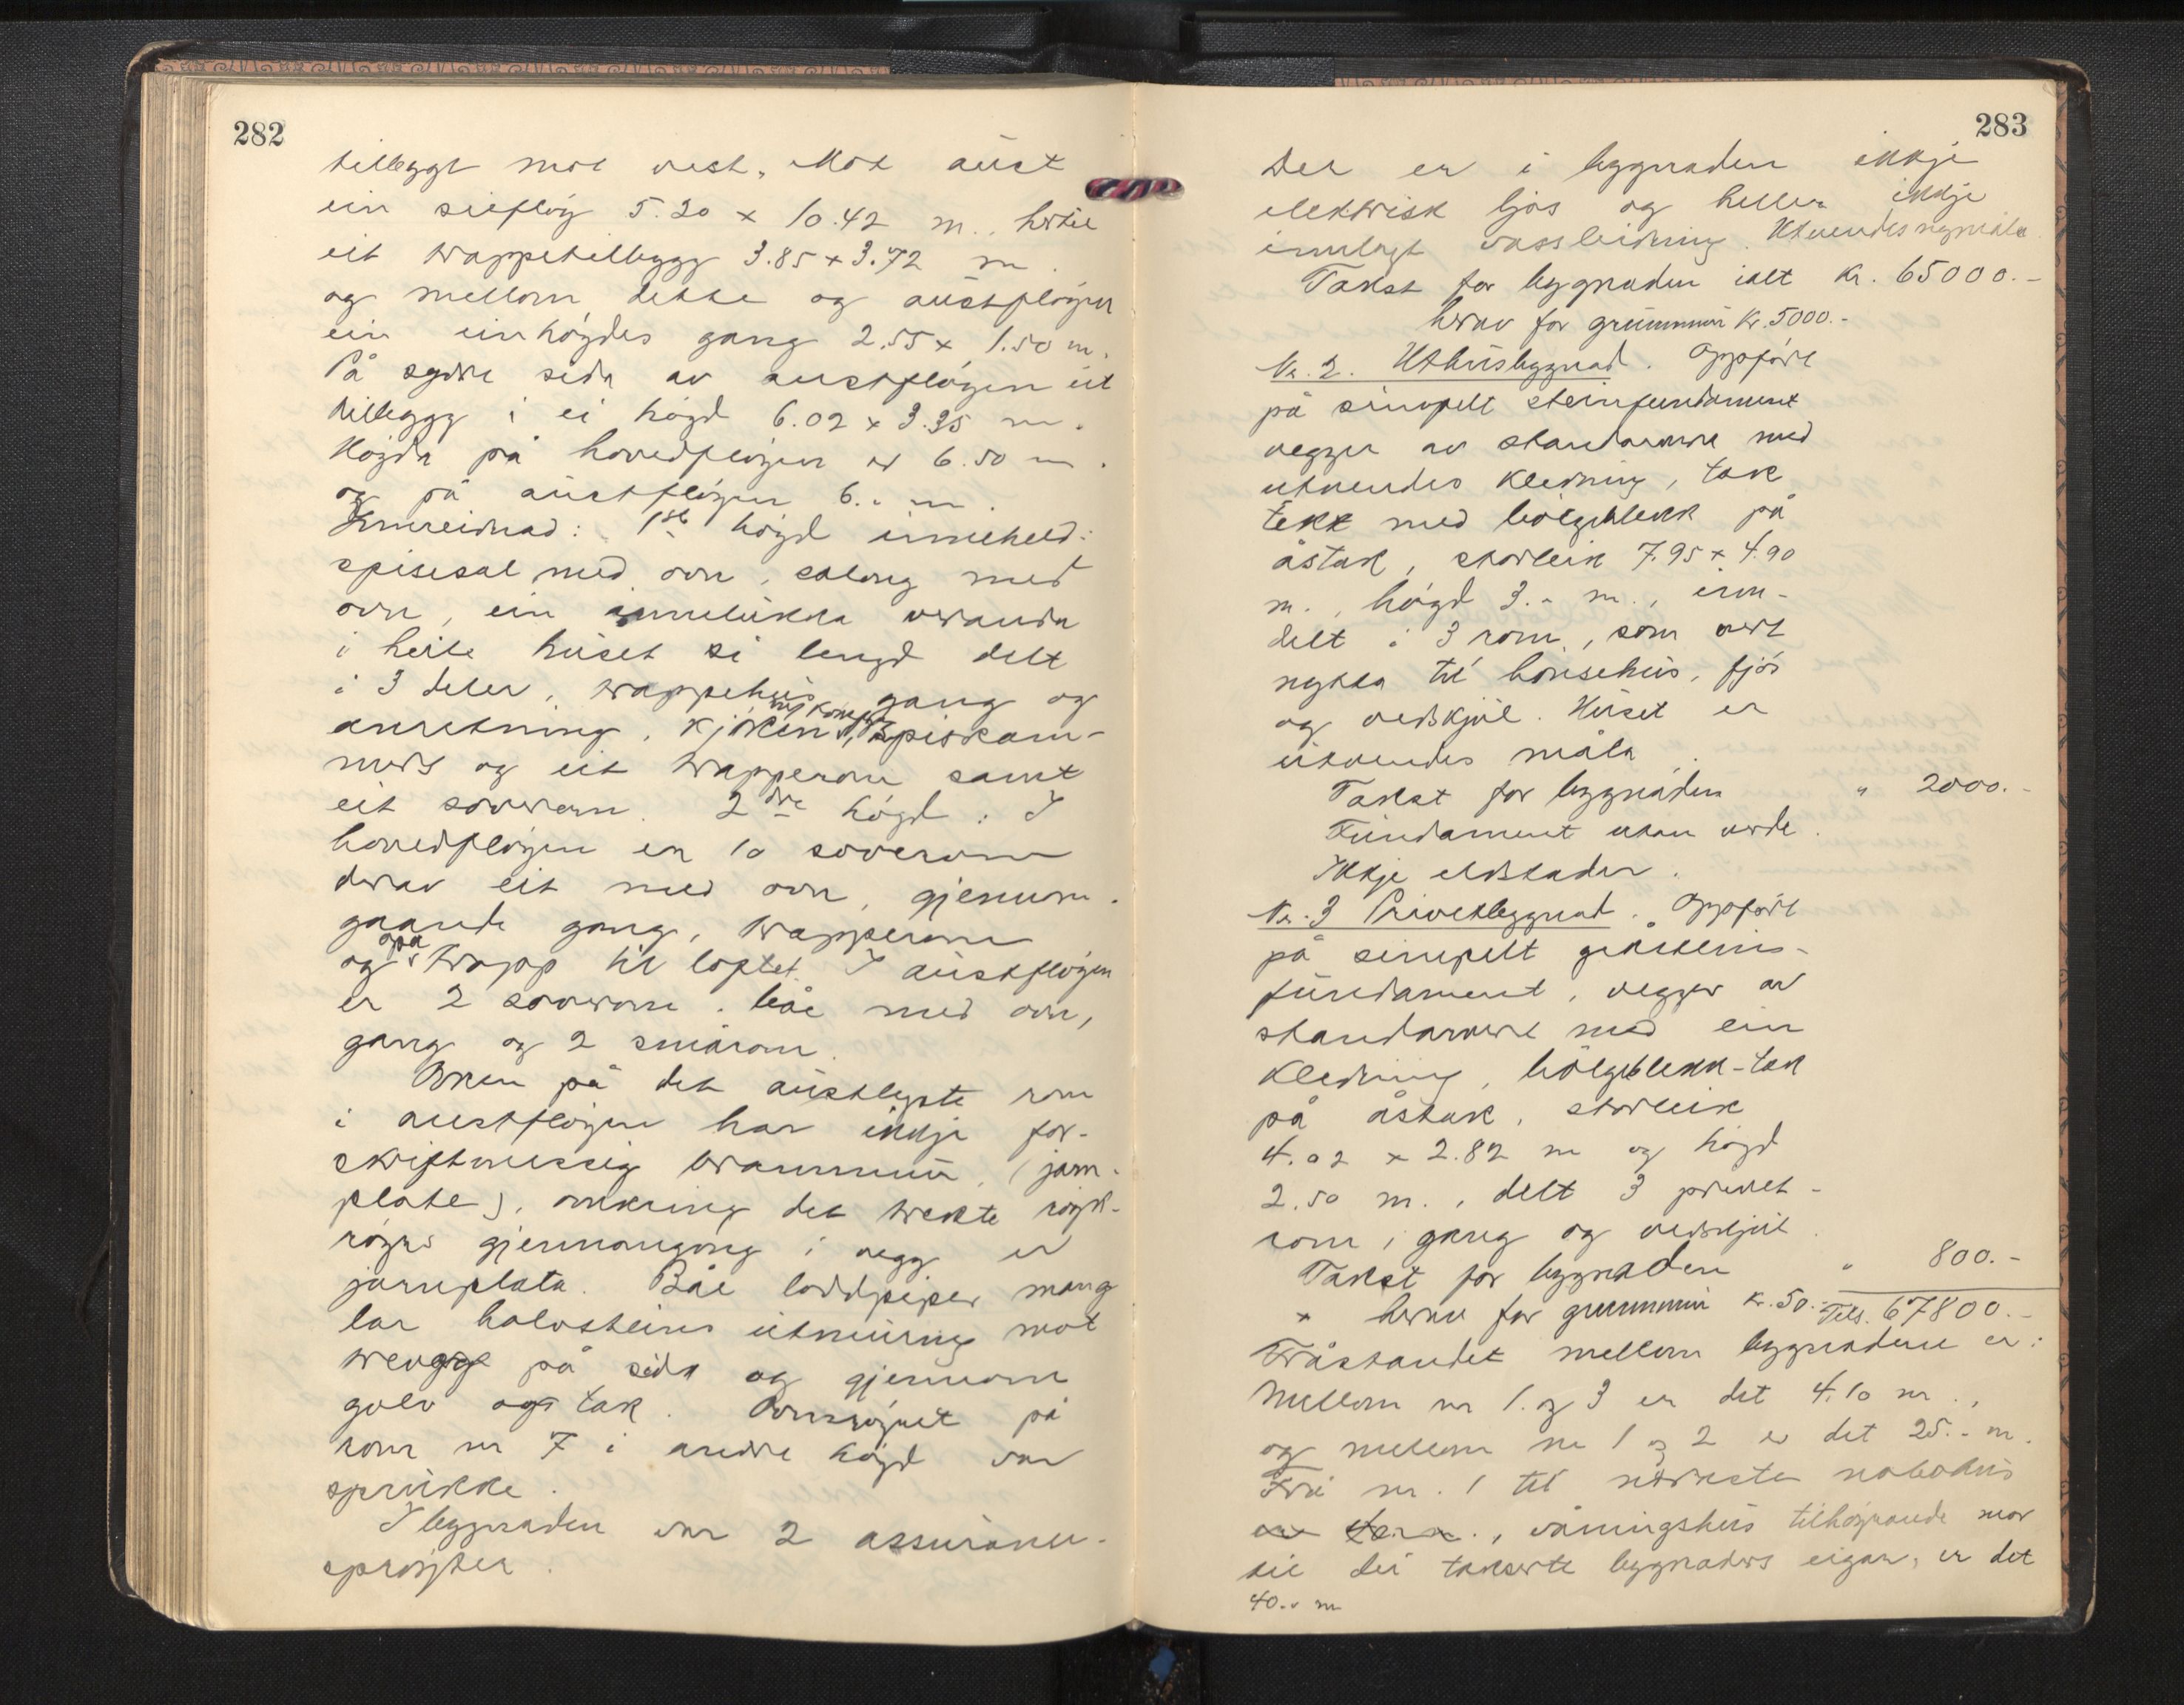 282
tilbygt mot vest. Mot aust
ein sieflöy 5.20 x 10.42 m. hertil
eit trappetilbygg 3.85 x 3.72 m.
og mellom dette og austflöyen
ein einhögdes gang 2.55 x 1.50 m.
På sydre sida av austflöyen eit
tilbygg i ei högd 6.02 x 3.35 m.
Högda på hovedflöyen er 6.50 m.
og på austflöyen 6.- m.
Innreidnad: 1ste högd inneheld:
spisesal med ovn, salong med
ovn, ein innelukka veranda
i heile huset si lengd delt
i 3 deler, trappehus, gang og
anretning, kjöken m/ komfyr, spiskam-
mers og eit trapperom samt
eit soverom. 2dre högd: I
hovedflöyen er 10 soverom
derav eit med ovn, gjenom-
gaande gang, trapperom
og opa trapp til loftet. I austflöyen
er 2 soverom, båe med ovn,
gang og 2 smårom.
Ovnen på det austlegste rom
i austflöyen har ikkje for-
skriftmessig brannmur, (jarn-
plate), omkring det trekte röyk-
röyrs gjennomgong i vegg er
jarnplata. Båe loddpiper mang
lar halvsteins utmuring mot
trevegg på sida og gjenom
golv og tak. Ovnsröyret på
rom nr 7 i andre högd var
sprukke.
I bygnaden var 2 assuranse-
sprøyter.
283
Det er i bygnaden ikkje
elektrisk ljos og heller ikkje
innlagt vassleidning. Utvendes nymåla
Takst for bygnaden ialt Kr. 65000.-
herav for grunnmur Kr. 5000.-
Nr. 2. Uthusbygnad. Oppfört
på simpelt steinfundament
vegger av standarverk med
utvendes kledning, tak
tekt med bölgeblekk på
åstak, storleik 7.95 x 4.90
m., högd 3.- m., inn-
delt i 3 rom, som vert
nytta til hönsehus, fjös
og vedskjul. Huset er
utvendes måla.
Takst for bygnaden " 2000.-
Fundament utan verde.
Ikkje eldstader.
Nr. 3 Privetbygnad. Oppfört
på simpelt gråsteins-
fundament, vegger av
standarverk med ein
kledning, bölgeblekk-tak
på åstak, storleik
4.02 x 2.82 m og högd
2.50 m., delt 3 privet-
rom, gang og vedskjul.
Takst for bygnaden " 800.-
x herav for grunnmur Kr. 50.- Tils. 67800.-
Fråstandet mellom bygnadene er:
Mellom nr 1. og 3 er det 4.10 m.,
og mellom nr 1 og 2 er det 25.- m.
Frå nr. 1 til nærmeste nabohus
våningshus tilhöyrande mor
til dei takserte bygnaders eigar, er det
40.- m